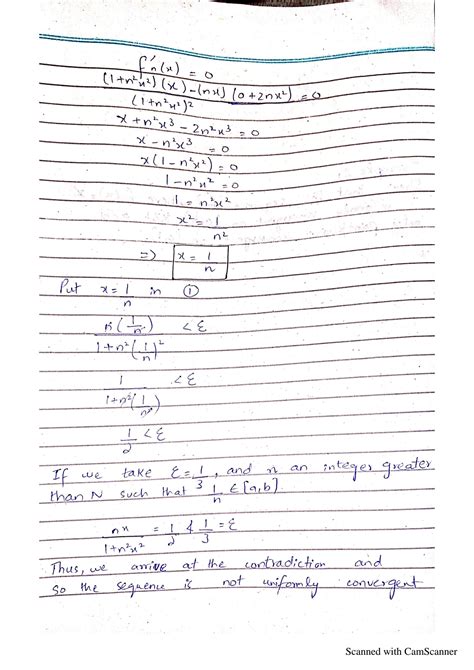 f'n(x) = 0
(1+n²x²)(x) - (nx)(0+2nx²) = 0
(1+n²x²)²
x + n²x³ - 2n²x³ = 0
x - n²x³ = 0
x(1 - n²x²) = 0
1 - n²x² = 0
1 = n²x²
x² = 1/n²
=> x = 1/n
Put x = 1/n in ①
n(1/n) < ε
1+n²(1/n)²
1 < ε
1+n²(1/n²)
1/2 < ε
If we take ε = 1/3, and n an integer greater
than N such that 1/n ∈ [a,b]
nx/(1+n²x²) = 1/2 ≮ 1/3 = ε
Thus, we arrive at the contradiction and
so the sequence is not uniformly convergent
Scanned with CamScanner